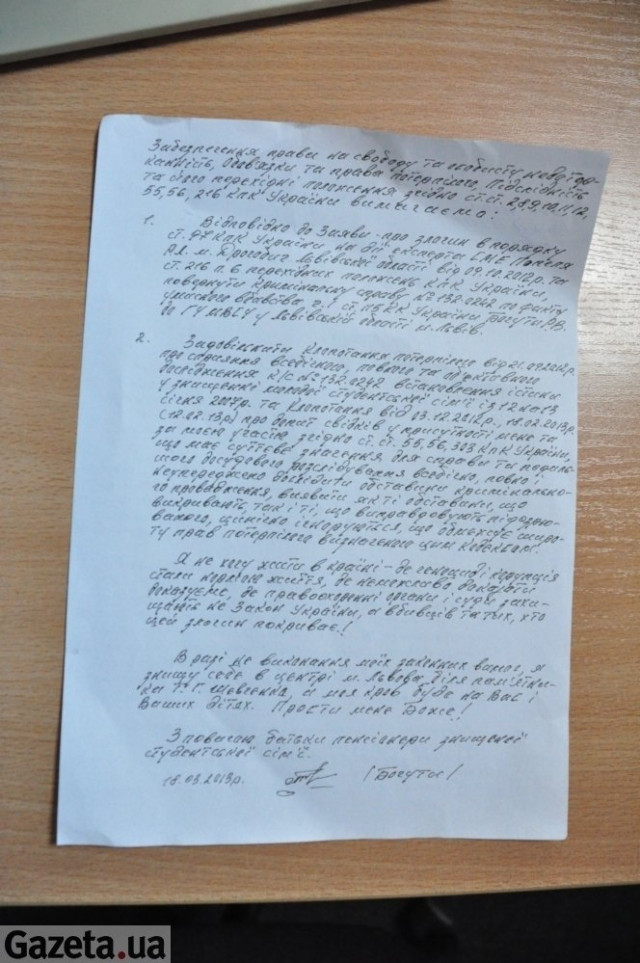 Забезпечення права на свободу та особисту недотор-
канність, Обов'язки та права потерпілого, Підслідність
та його перехідні положення згідно ст.ст. 2,8,9,10,11,12,
55,56, 216 КПК України вимагаємо:
1. Відповідно до Заяви - про злочин в порядку
ст. 97 КПК України, на дії експерта СМЕ
м. Дрогобич Львівської області від 09.10.2012р. та
ст. 216 п. 6 перехідних положень КПК України,
повернути Кримінальну справу № 132-0242 по факту
умисного вбивства ч. ст. КК України Богути Р.В.
до ГУМВСУ у Львівській області м. Львів.
2. Задовільнити Клопотання потерпілого від 21.09.2012р.
про сприяння всебічного, повного та об'єктивного
дослідження К/С № 132-0242 встановлення істини
у знищенні молодої студентської сім'ї із 12 на 13
січня 2007р. та Клопотання від 03.12.2012р., 18.02.2013р
(12.02.13р) про допит свідків у присутності мене та
за моєю участю згідно ст.ст. 55,56, 303 КПК України,
що має суттєве значення для справи та подаль-
шого досудового розслідування всебічно, повно і
неупереджено дослідити обставини кримінально-
го провадження, виявити як ті обставини, що
викривають, так і ті, що виправдовують підозрю-
ваного, цинічно ігноруються, що обмежує широ-
ту прав потерпілого визначеного цим Кодексом.
Я не хочу жити в країні - де геноцид і корупція
стали нормою життя, де неможливо доказати
доказуєме, де правоохоронні органи і суди захи-
щають не Закон України, а вбивців та тих, хто
цей злочин покриває!
В разі не виконання моїх законних вимог, я
знищу себе в центрі м. Львова, біля пам'ятни-
ка Т.Г. Шевченка, и моя кров буде на Вас і
Ваших дітях. Прости мене Боже!
З повагою батьки пенсіонери знищеної
студентської сім'ї.
18.03.2013р. /Богути/
Gazeta.ua